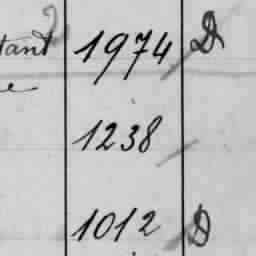 tant 1974 D
e
1238
1012 D